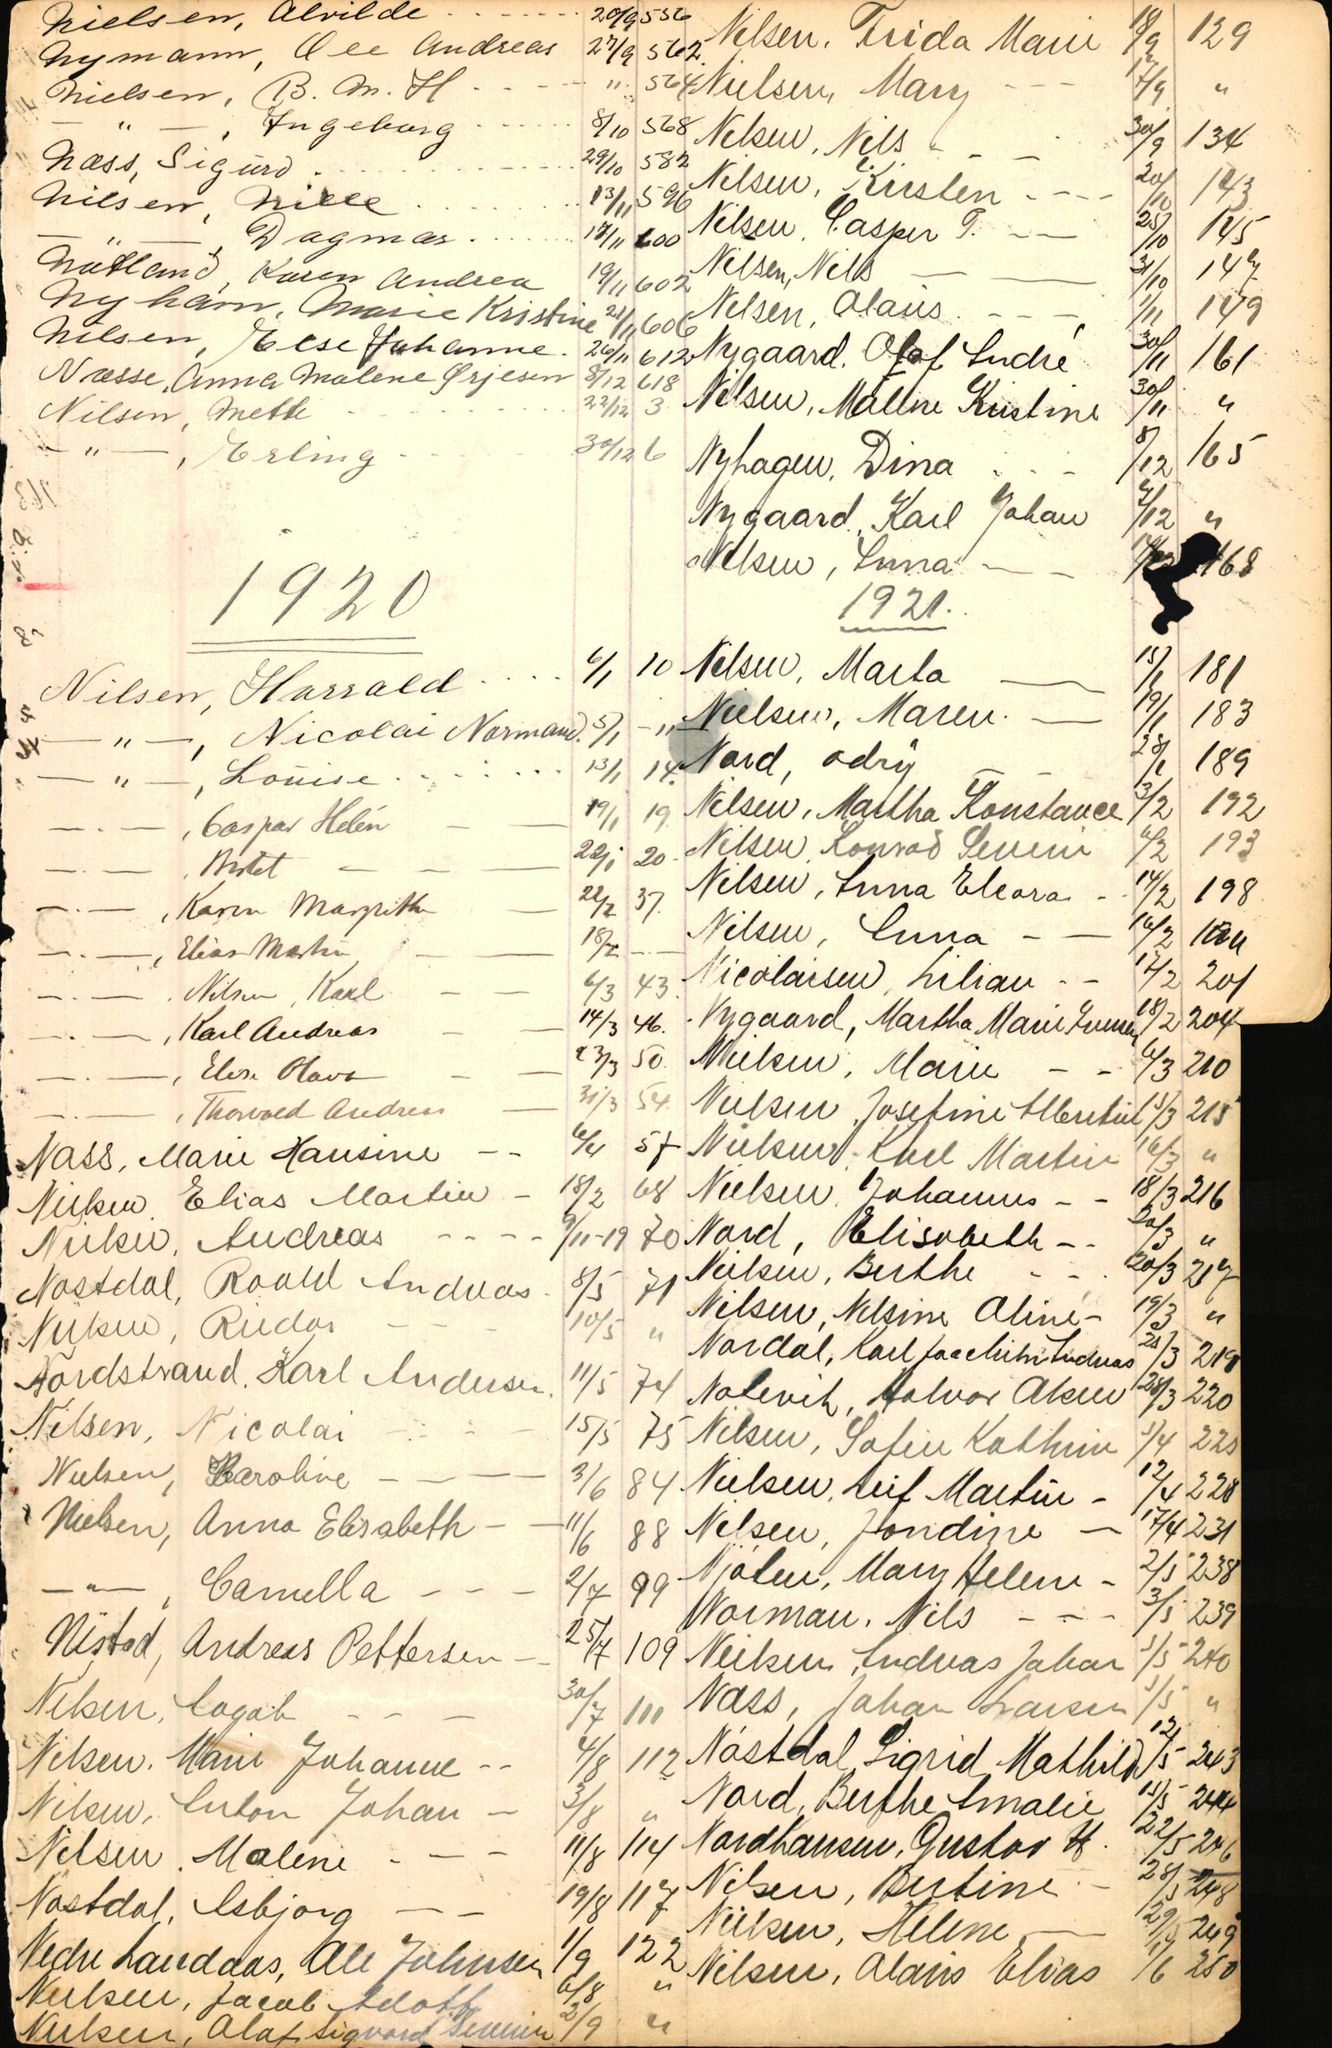 Nielsen, Alvilde 20/9 556
Nymann, Ole Andreas 27/9 562
Nielsen, B. M. H " 564
— " —, Ingeborg 8/10 568
Næss, Sigurd 29/10 582
Nilsen, Nille 13/11 596
— " —, Dagmar 17/11 600
Nätland, Karen Andrea 19/11 602
Nyham, Marie Kristine 21/11 606
Nilsen, Else Johanne 26/11 612
Næsse, Anna Malene Ørjesen 8/12 618
Nilsen, Mette 22/12 3
— " —, Erling 30/12 6
1920
Nilsen, Harrald 6/1 10
— " —, Nicolai Normand 5/1 - "
— " —, Louise 13/1 14
— . —, Caspar Helén 19/1 19
— . —, 22/1 20
— . —, Karen Margrithe 22/2 37
— . —, Elias Martin 18/2
— . —, Nilsen, Karl 6/3 43
— . —, Karl Andreas 14/3 46
— . —, Elise Olava 23/3 50
— . —, Thorvald Andreas 31/3 54
Næss, Marie Hansine 6/4 57
Nielsen, Elias Martin 18/2 68
Nielsen, Andreas 9/11-19 70
Nøstdal, Roald Andreas 8/5 71
Nielsen, Reidar 10/5 "
Nordstrand, Karl Andersen 11/5 74
Nilsen, Nicolai 15/5 75
Nielsen, Karoline 3/6 84
Nielsen, Anna Elisabeth 11/6 88
— " —, Camella 2/7 99
Nistad, Andreas Pettersen 25/7 109
Nilsen, 30/7 111
Nilsen, Marie Johanne 4/8 112
Nilsen, Anton Johan 3/8 "
Nilsen, Malene 11/8 114
Nøstdal, Asbjørg 19/8 117
Nedre Landaas, Ole Johnsen 1/9 122
Nielsen, Jacob Adolf 6/8 "
Nielsen, Olaf Sigvard Severin 2/9 "
Nilsen, Frida Marie 18/9 129
Nielsen, Mary 17/9 "
Nilsen, Nils 30/9 134
Nilsen, Kirsten 20/10 143
Nilsen, Casper T. 25/10 145
Nilsen, Nils 31/10 147
Nilsen, Olaus 1/11 149
Nygaard, Olaf André 30/11 161
Nilsen, Malene Kristine 30/11 "
Nyhagen, Dina 8/12 165
Nygaard, Karl Johan /12 "
Nilsen, Anna 168
1921.
Nilsen, Marta 15/1 181
Nielsen, Maren 19/1 183
Nord, Odry 28/1 189
Nilsen, Martha Konstance 3/2 192
Nilsen, Konrad Severin 6/2 193
Nilsen, Anna Eleora 14/2 198
Nilsen, Anna 16/2
Nicolaisen, Lilian 17/2 201
Nygaard, Martha Marie 18/2 204
Nielsen, Marie 6/3 210
Nielsen, Josefine Albertine 15/3 215
Nielsen, Karl Martin 16/3 "
Nielsen, Johannes 18/3 216
Nord, Elisabeth 20/3 "
Nielsen, Berthe 20/3 217
Nilsen, Nilsine Oline 19/3 "
Nordal, Karl Joachim Andreas 25/3 219
Notevik, Halvor Aksen 28/3 220
Nilsen, Sofie Kathrine 5/4 225
Nielsen, Leif Martin 12/4 228
Nilsen, Jondine 17/4 231
Njølen, Mary Helene 2/5 238
Norman, Nils 3/5 239
Neilsen, Andreas Johan 5/5 240
Næss, Johan Larsen 5/5 "
Nøstdal, Sigrid Mathilde 12/5 243
Nord, Berthe Amalie 15/5 244
Nordhausen, Gustav H. 22/5 246
Nilsen, Bertine 28/5 248
Nielsen, Helene 29/5 249
Nilsen, Olaus Elias 1/6 250